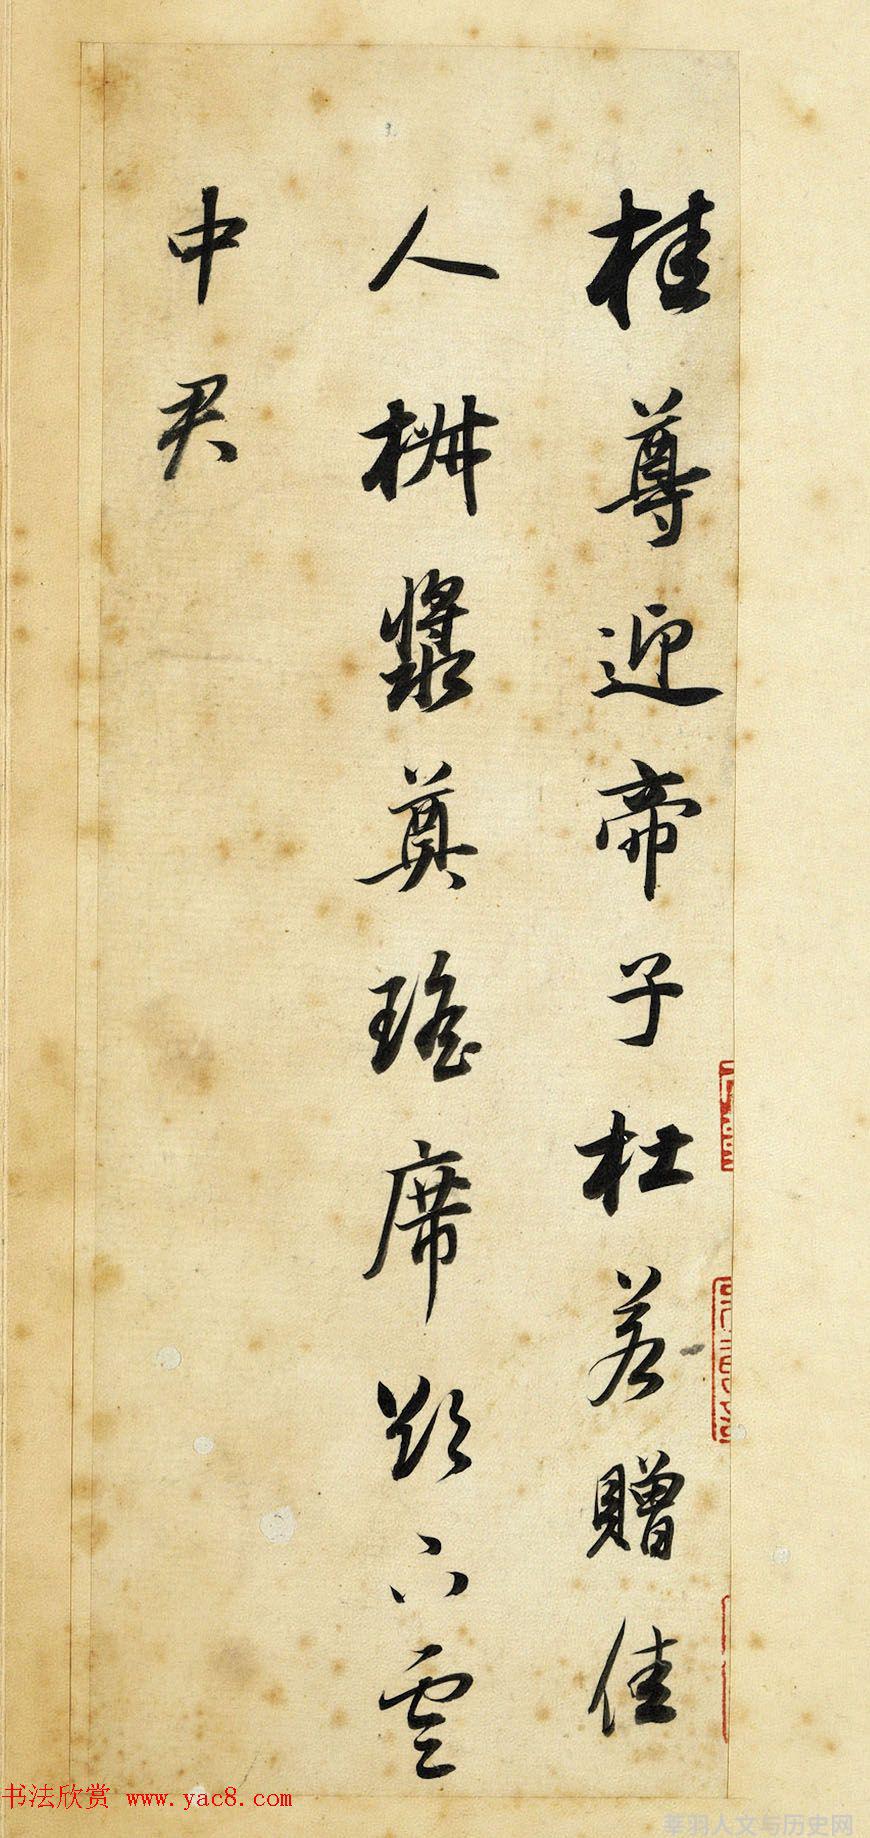 桂尊迎帝子杜若贈佳
人椒漿奠瑤席欲下雲
中君
书法欣赏 www.yac8.com
莘羽人文与历史网